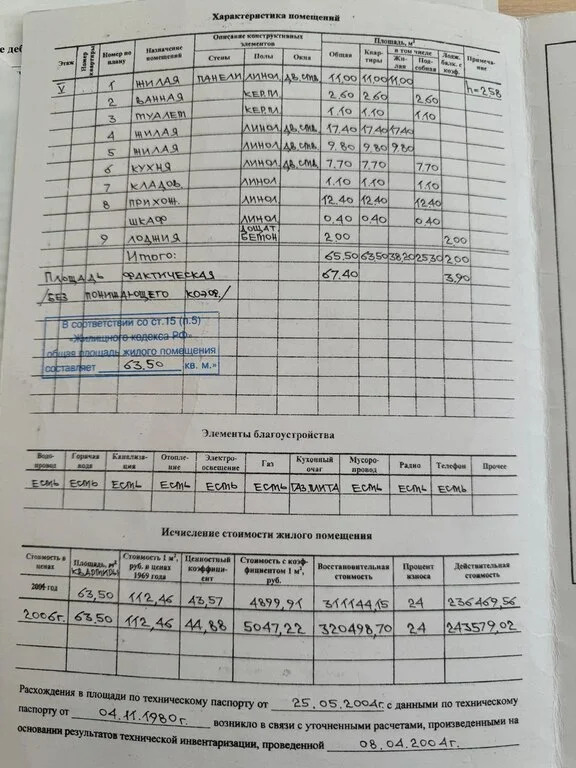 Характеристика помещений
Этаж | Номер квартиры | Номер по плану | Назначение помещений | Описание конструктивных элементов | Площадь, м² | Примечание
Стены | Полы | Окна | Общая | в том числе | Лодж. балк. с коэф.
Квартиры | Жилая | Подсобная
V | 1 | ЖИЛАЯ | ПАНЕЛИ | ЛИНОЛ | ДВ.СТВ. | 11.00 | 11.00 | 11.00 | h=2.58
2 | ВАННАЯ | КЕР.ПЛ. | 2.60 | 2.60 | 2.60
3 | ТУАЛЕТ | КЕР.ПЛ. | 1.10 | 1.10 | 1.10
4 | ЖИЛАЯ | ЛИНОЛ | ДВ.СТВ. | 17.40 | 17.40 | 17.40
5 | ЖИЛАЯ | ЛИНОЛ | ДВ.СТВ. | 9.80 | 9.80 | 9.80
6 | КУХНЯ | ЛИНОЛ | ДВ.СТВ. | 7.70 | 7.70 | 7.70
7 | КЛАДОВ. | ЛИНОЛ | 1.10 | 1.10 | 1.10
8 | ПРИХОЖ. | ЛИНОЛ | 12.40 | 12.40 | 12.40
ШКАФ | ЛИНОЛ | 0.40 | 0.40 | 0.40
9 | ЛОДЖИЯ | ДОЩАТ. БЕТОН | 2.00 | 2.00
Итого: | 65.50 | 63.50 | 38.20 | 25.30 | 2.00
ПЛОЩАДЬ ФАКТИЧЕСКАЯ | 67.40 | 3.90
/БЕЗ ПОНИЖАЮЩЕГО КОЭФ./
В соответствии со ст.15 (п.5)
«Жилищного кодекса РФ»
общая площадь жилого помещения
составляет 63.50 кв. м.»
Элементы благоустройства
Водопровод | Горячая вода | Канализация | Отопление | Электроосвещение | Газ | Кухонный очаг | Мусоропровод | Радио | Телефон | Прочее
ЕСТЬ | ЕСТЬ | ЕСТЬ | ЕСТЬ | ЕСТЬ | ЕСТЬ | ГАЗ.ПЛИТА | ЕСТЬ | ЕСТЬ | ЕСТЬ
Исчисление стоимости жилого помещения
Стоимость в ценах | Площадь, м² КВАРТИРЫ | Стоимость 1 м², руб. в ценах 1969 года | Ценностный коэффициент | Стоимость с коэффициентом 1 м², руб. | Восстановительная стоимость | Процент износа | Действительная стоимость
2004 года | 63,50 | 112,46 | 43,57 | 4899,91 | 311144,15 | 24 | 236469,56
2006г. | 63,50 | 112,46 | 44,88 | 5047,22 | 320498,70 | 24 | 243579,02
Расхождения в площади по техническому паспорту от 25.05.2004г. с данными по техническому
паспорту от 04.11.1980г. возникло в связи с уточненными расчетами, произведенными на
основании результатов технической инвентаризации, проведенной 08.04.2004г.